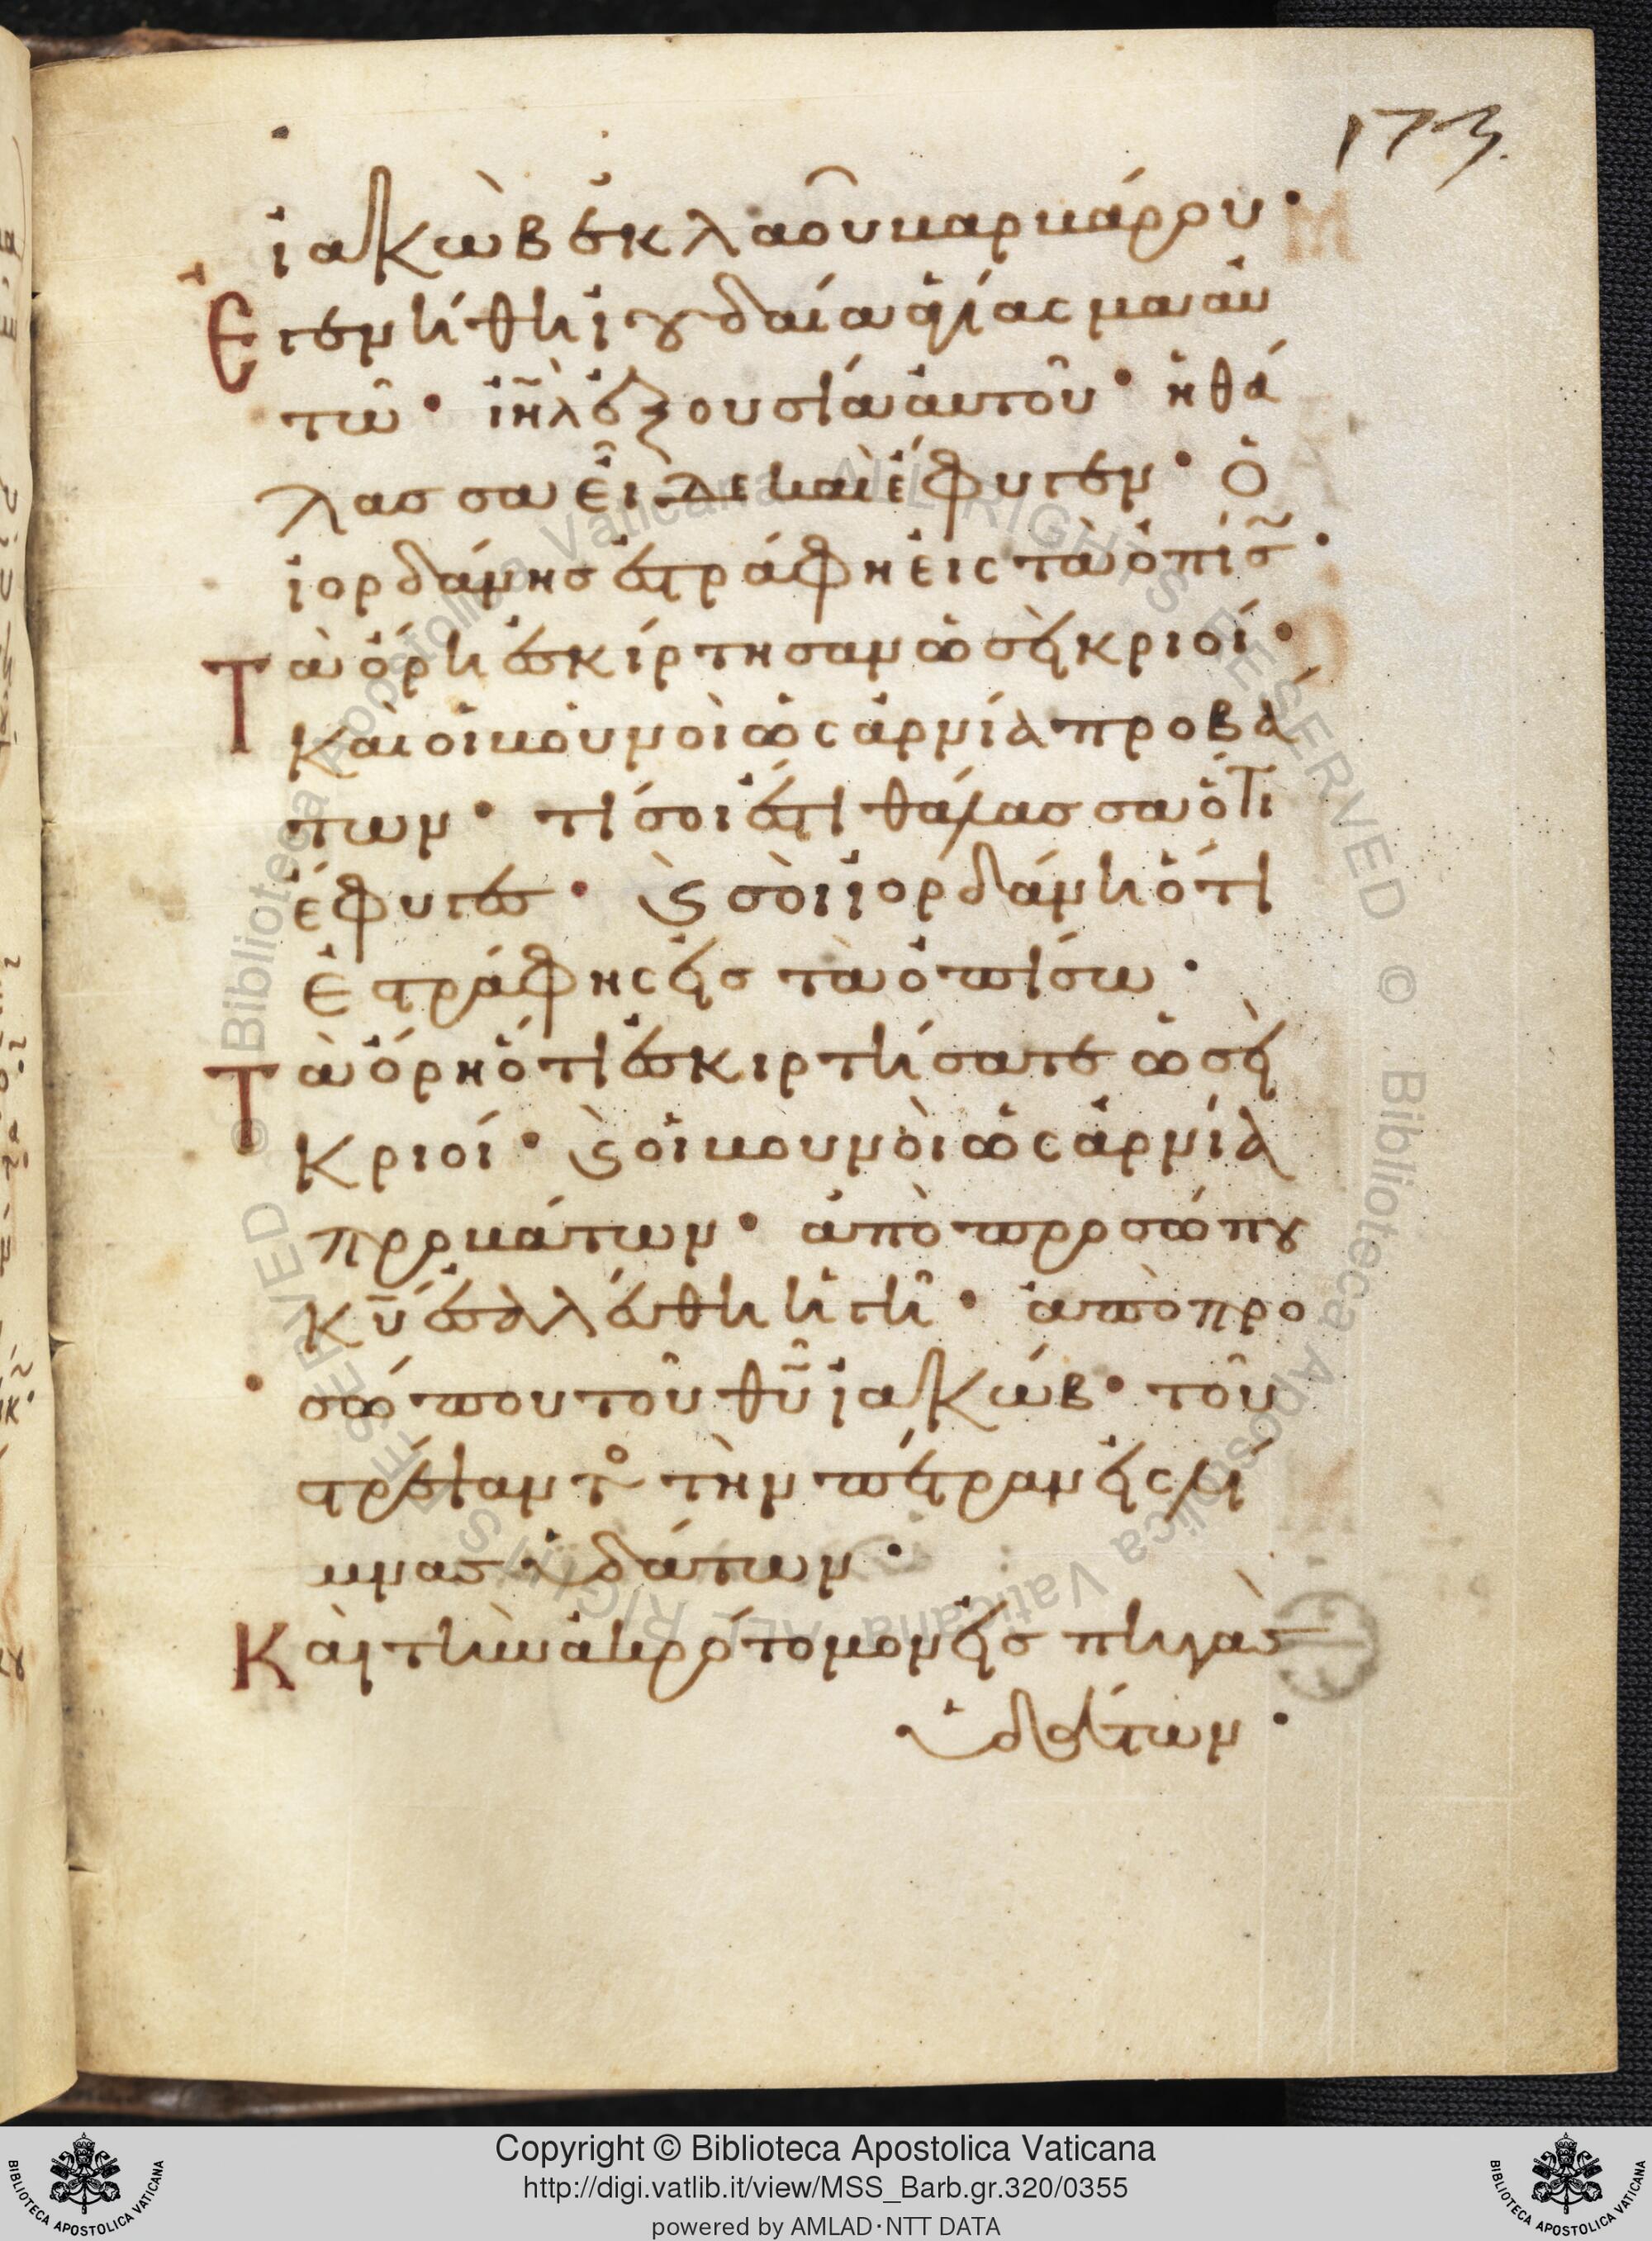 173.
ἰακὼβ ἐκ λαοῦ βαρβάρου·
Ἐγενήθη ἰουδαία ἁγίασμα αὐ
τοῦ· ἰη̃λ ἐξουσία αὐτοῦ· ἡ θά
λασσα εἶδε καὶ ἔφυγεν· ὁ
ἰορδάνησ ἐστράφη εἰς τὰ ὀπίσ̃·
Τὰ ὄρη ἐσκίρτησαν ὡσεὶ κριοί·
καὶ οἱ βουνοὶ ὡς ἀρνία προβά
των· τί σοι ἐστὶ θάλασσα ὅτι
ἔφυγες· ϗ̀ σοὶ ἰορδάνη ὅτι
ἐστράφης εἰσ τὰ ὀπίσω·
Τὰ ὄρη ὅτι ἐσκιρτήσατε ὡσεὶ
κριοί· ϗ̀ οἱ βουνοὶ ὡς ἀρνία
προβάτων· ἀπὸ προσώπου
κῡ ἐσαλεύθη ἡ γῆ· ἀπὸ προ
σώπου τοῦ θῡ ἰακώβ· τοῦ
στρέψαντο̃ τὴν πέτραν εἰς λί
μνασ ὑδάτων·
Καὶ τὴν ἀκρότομον εἰσ πηγὰσ
ὑδάτων·
Copyright © Biblioteca Apostolica Vaticana
http://digi.vatlib.it/view/MSS_Barb.gr.320/0355
powered by AMLAD·NTT DATA
BIBLIOTECA APOSTOLICA VATICANA
BIBLIOTECA APOSTOLICA VATICANA
© Biblioteca Apostolica Vaticana ALL RIGHTS RESERVED
© Biblioteca Apostolica Vaticana ALL RIGHTS RESERVED